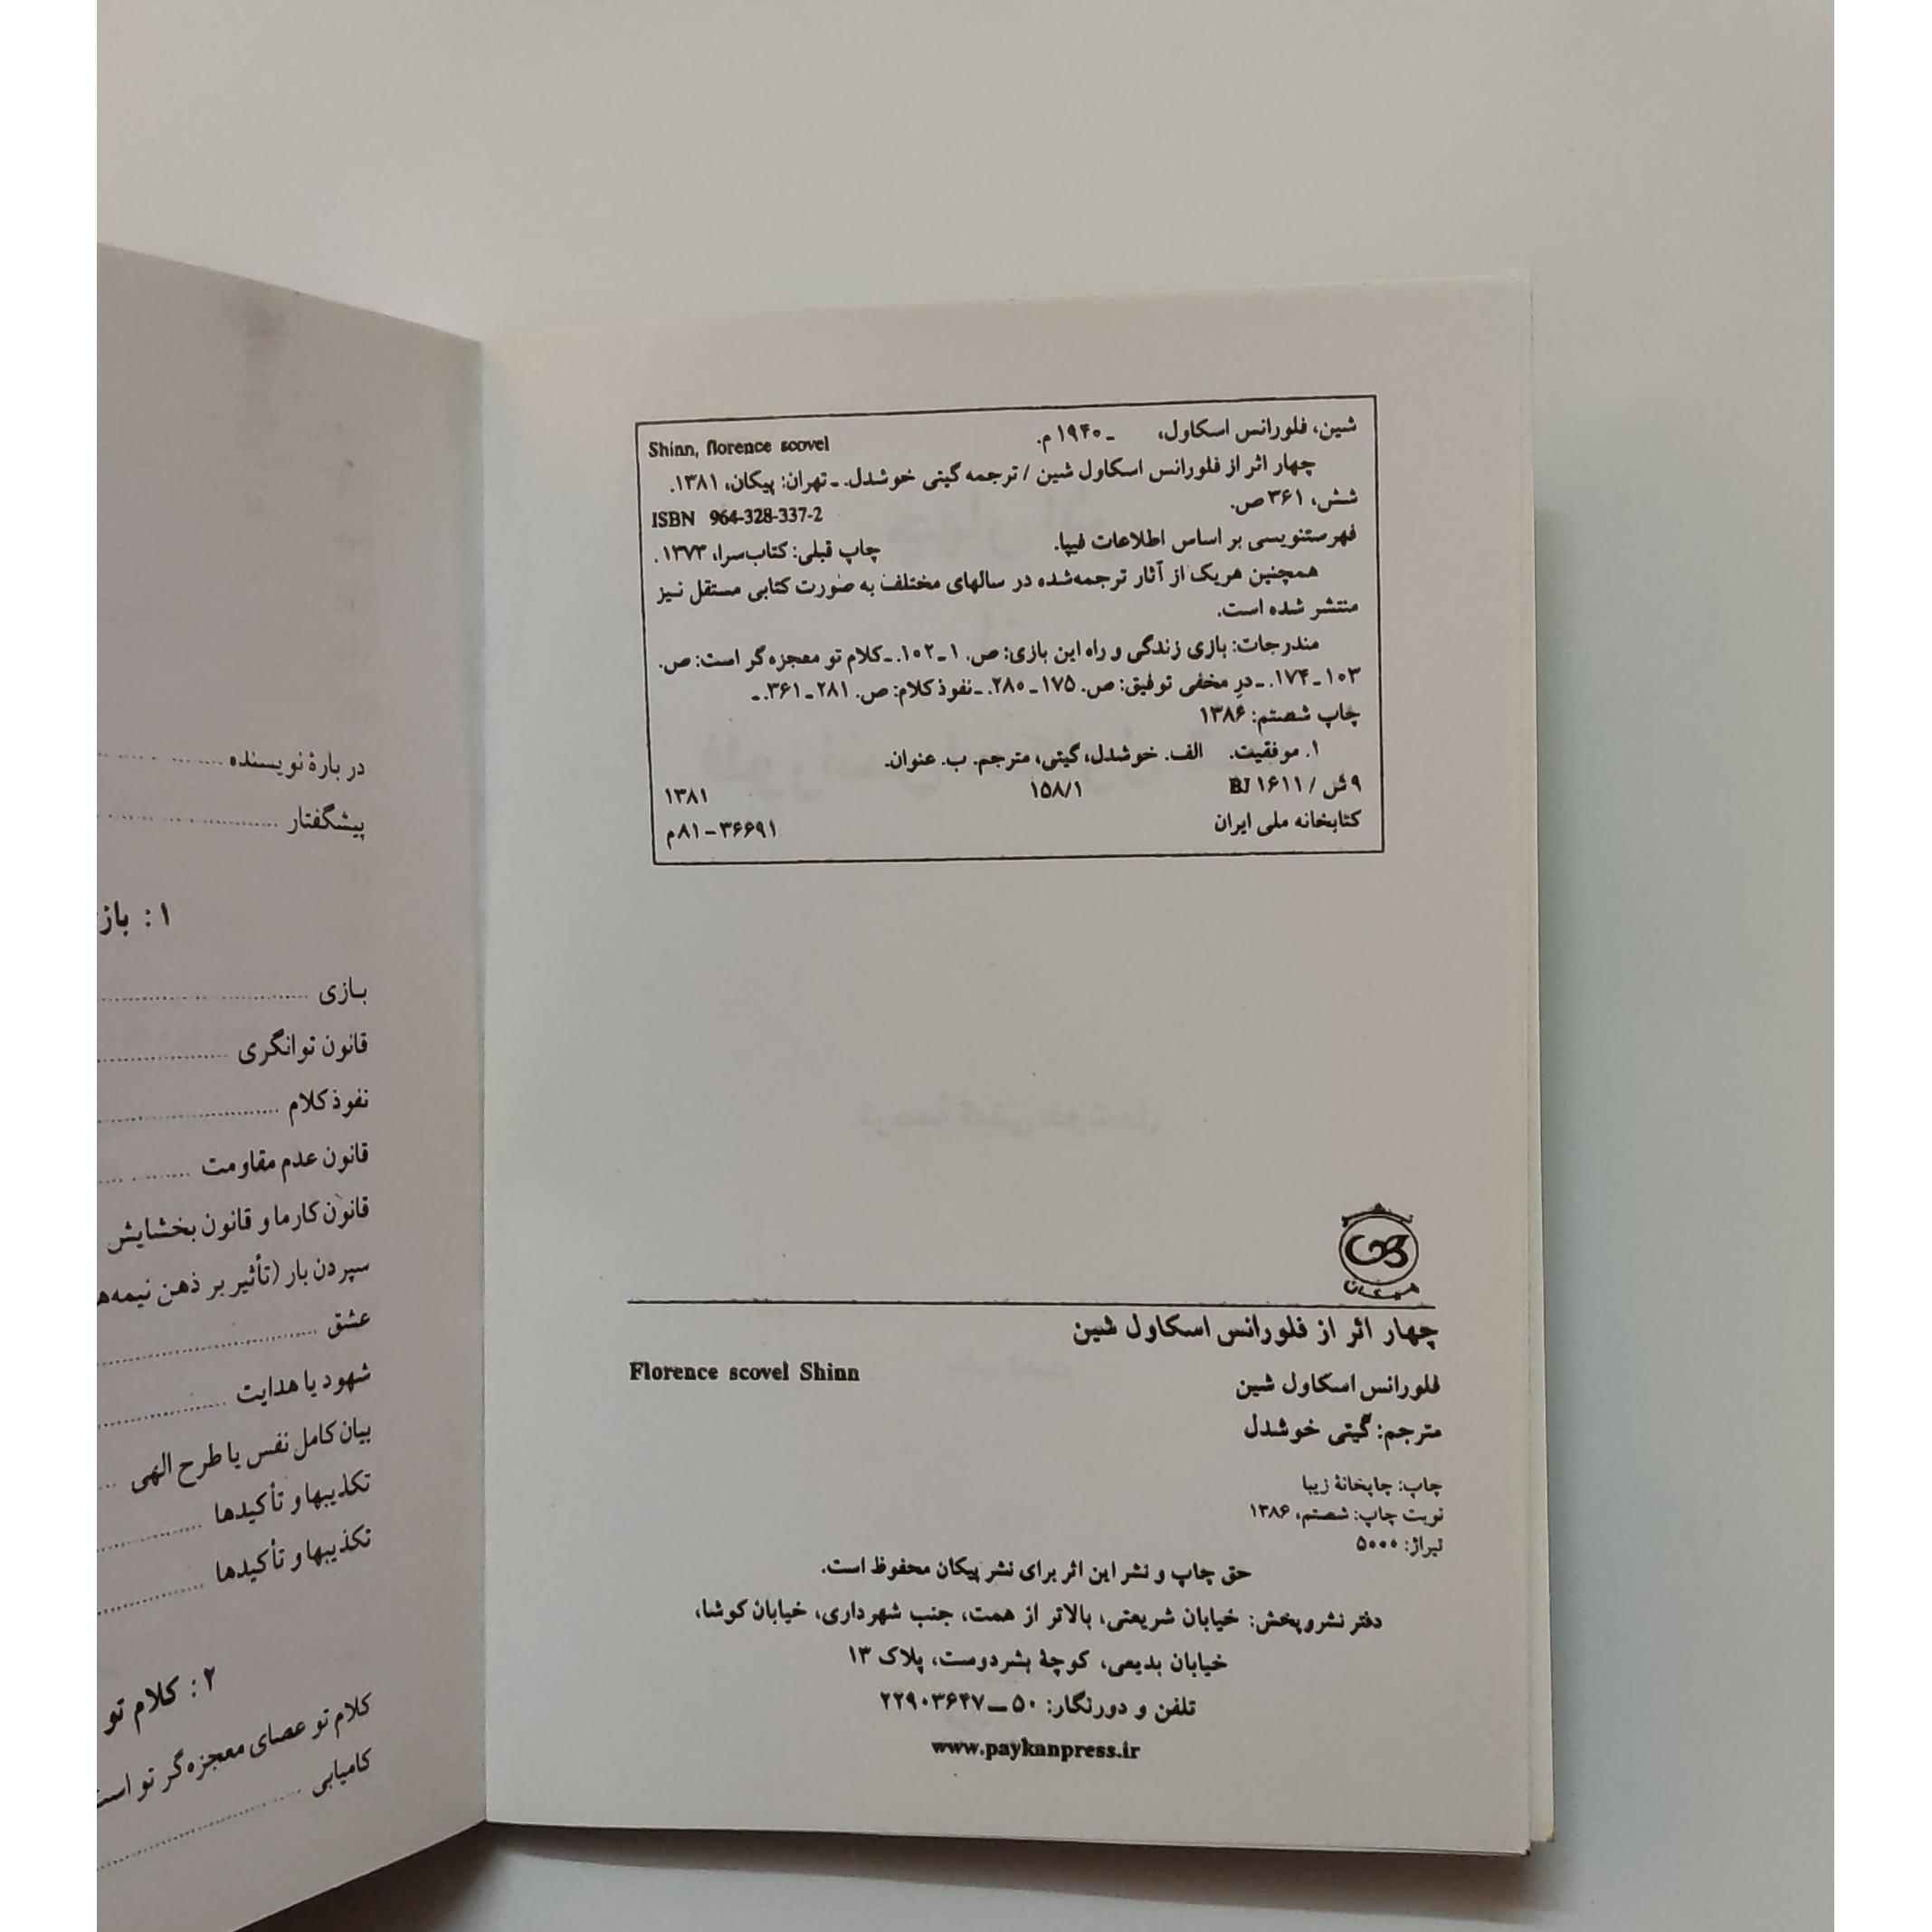 شین، فلورانس اسکاول، ـ ۱۹۴۰ م. Shinn, florence scovel
چهار اثر از فلورانس اسکاول شین / ترجمه گیتی خوشدل. ـ تهران: پیکان، ۱۳۸۱.
شش، ۳۶۱ ص. ISBN 964-328-337-2
فهرستنویسی بر اساس اطلاعات فیپا. چاپ قبلی: کتاب‌سرا، ۱۳۷۳.
همچنین هریک از آثار ترجمه‌شده در سالهای مختلف به صورت کتابی مستقل نیز
منتشر شده است.
مندرجات: بازی زندگی و راه این بازی: ص. ۱ـ۱۰۲. ـ کلام تو معجزه‌گر است: ص.
۱۰۳ـ۱۷۴. ـ درِ مخفی توفیق: ص. ۱۷۵ـ۲۸۰. ـ نفوذ کلام: ص. ۲۸۱ـ۳۶۱. ـ
چاپ شصتم: ۱۳۸۶
۱. موفقیت. الف. خوشدل، گیتی، مترجم. ب. عنوان.
۹ش / BJ ۱۶۱۱ ۱۵۸/۱ ۱۳۸۱
کتابخانه ملی ایران ۳۶۶۹۱-۸۱م
پیکان
چهار اثر از فلورانس اسکاول شین
فلورانس اسکاول شین Florence scovel Shinn
مترجم: گیتی خوشدل
چاپ: چاپخانهٔ زیبا
نوبت چاپ: شصتم، ۱۳۸۶
تیراژ: ۵۰۰۰
حق چاپ و نشر این اثر برای نشر پیکان محفوظ است.
دفتر نشر و پخش: خیابان شریعتی، بالاتر از همت، جنب شهرداری، خیابان کوشا،
خیابان بدیعی، کوچهٔ بشردوست، پلاک ۱۳
تلفن و دورنگار: ۵۰ــ۲۲۹۰۳۶۴۷
www.paykanpress.ir
دربارهٔ نویسنده
پیشگفتار
۱: باز
بازی
قانون توانگری
نفوذ کلام
قانون عدم مقاومت
قانون کارما و قانون بخشایش
سپردن بار (تأثیر بر ذهن نیمه‌ه
عشق
شهود یا هدایت
بیان کامل نفس یا طرح الهی
تکذیبها و تأکیدها
تکذیبها و تأکیدها
۲: کلام تو
کلام تو عصای معجزه‌گر تو است
کامیابی